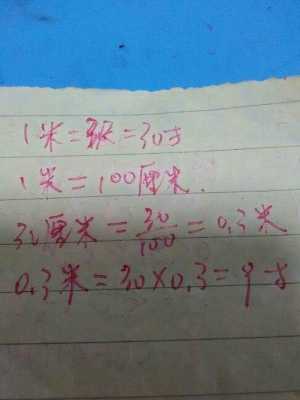 1米=3尺=30寸
1米=100厘米.
30厘米=30/100=0.3米
0.3米=30×0.3=9寸